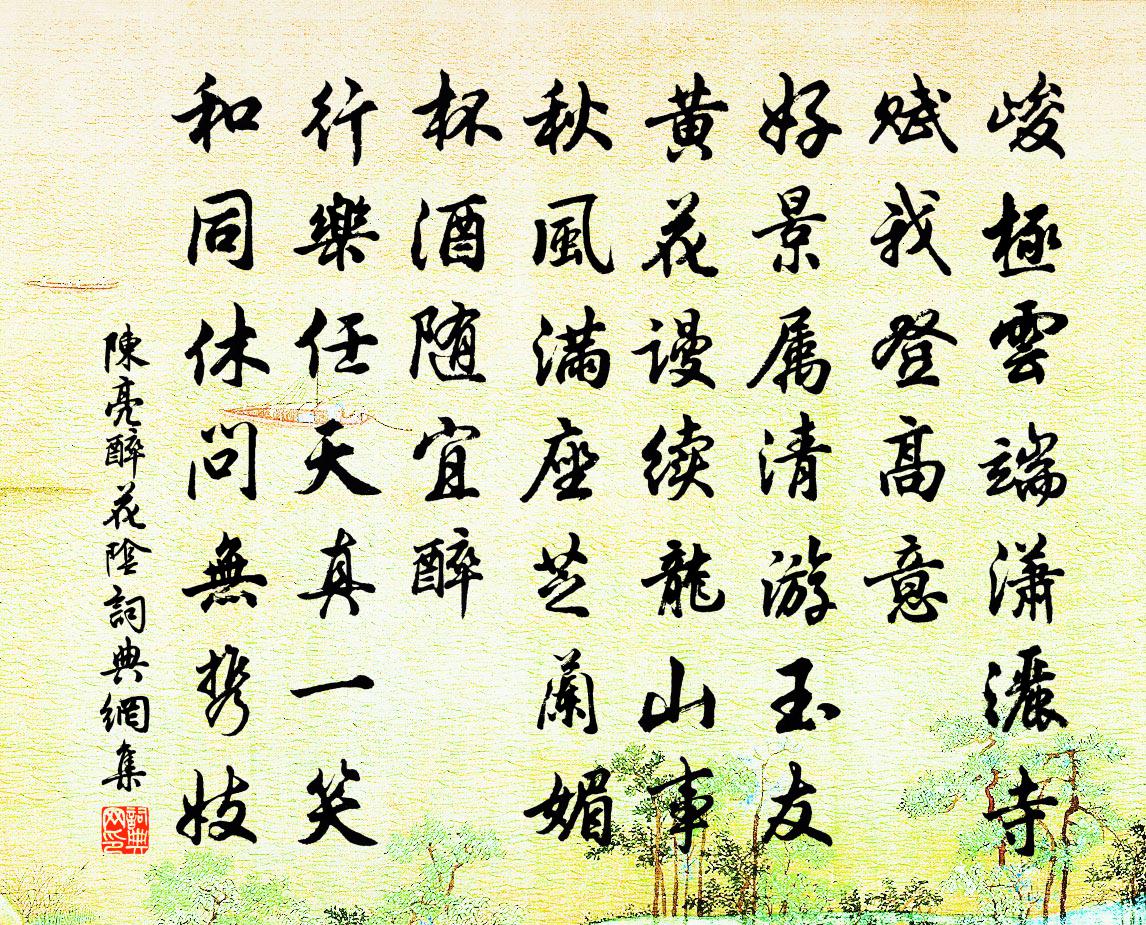 峻極雲端潇灑寺
赋我登高意
好景属清游玉友
黄花谩续龍山事
秋風满座芝蘭媚
杯酒随宜醉
行樂任天真一笑
和同休問無携妓
陳亮醉花陰詞典網集
詞典网印